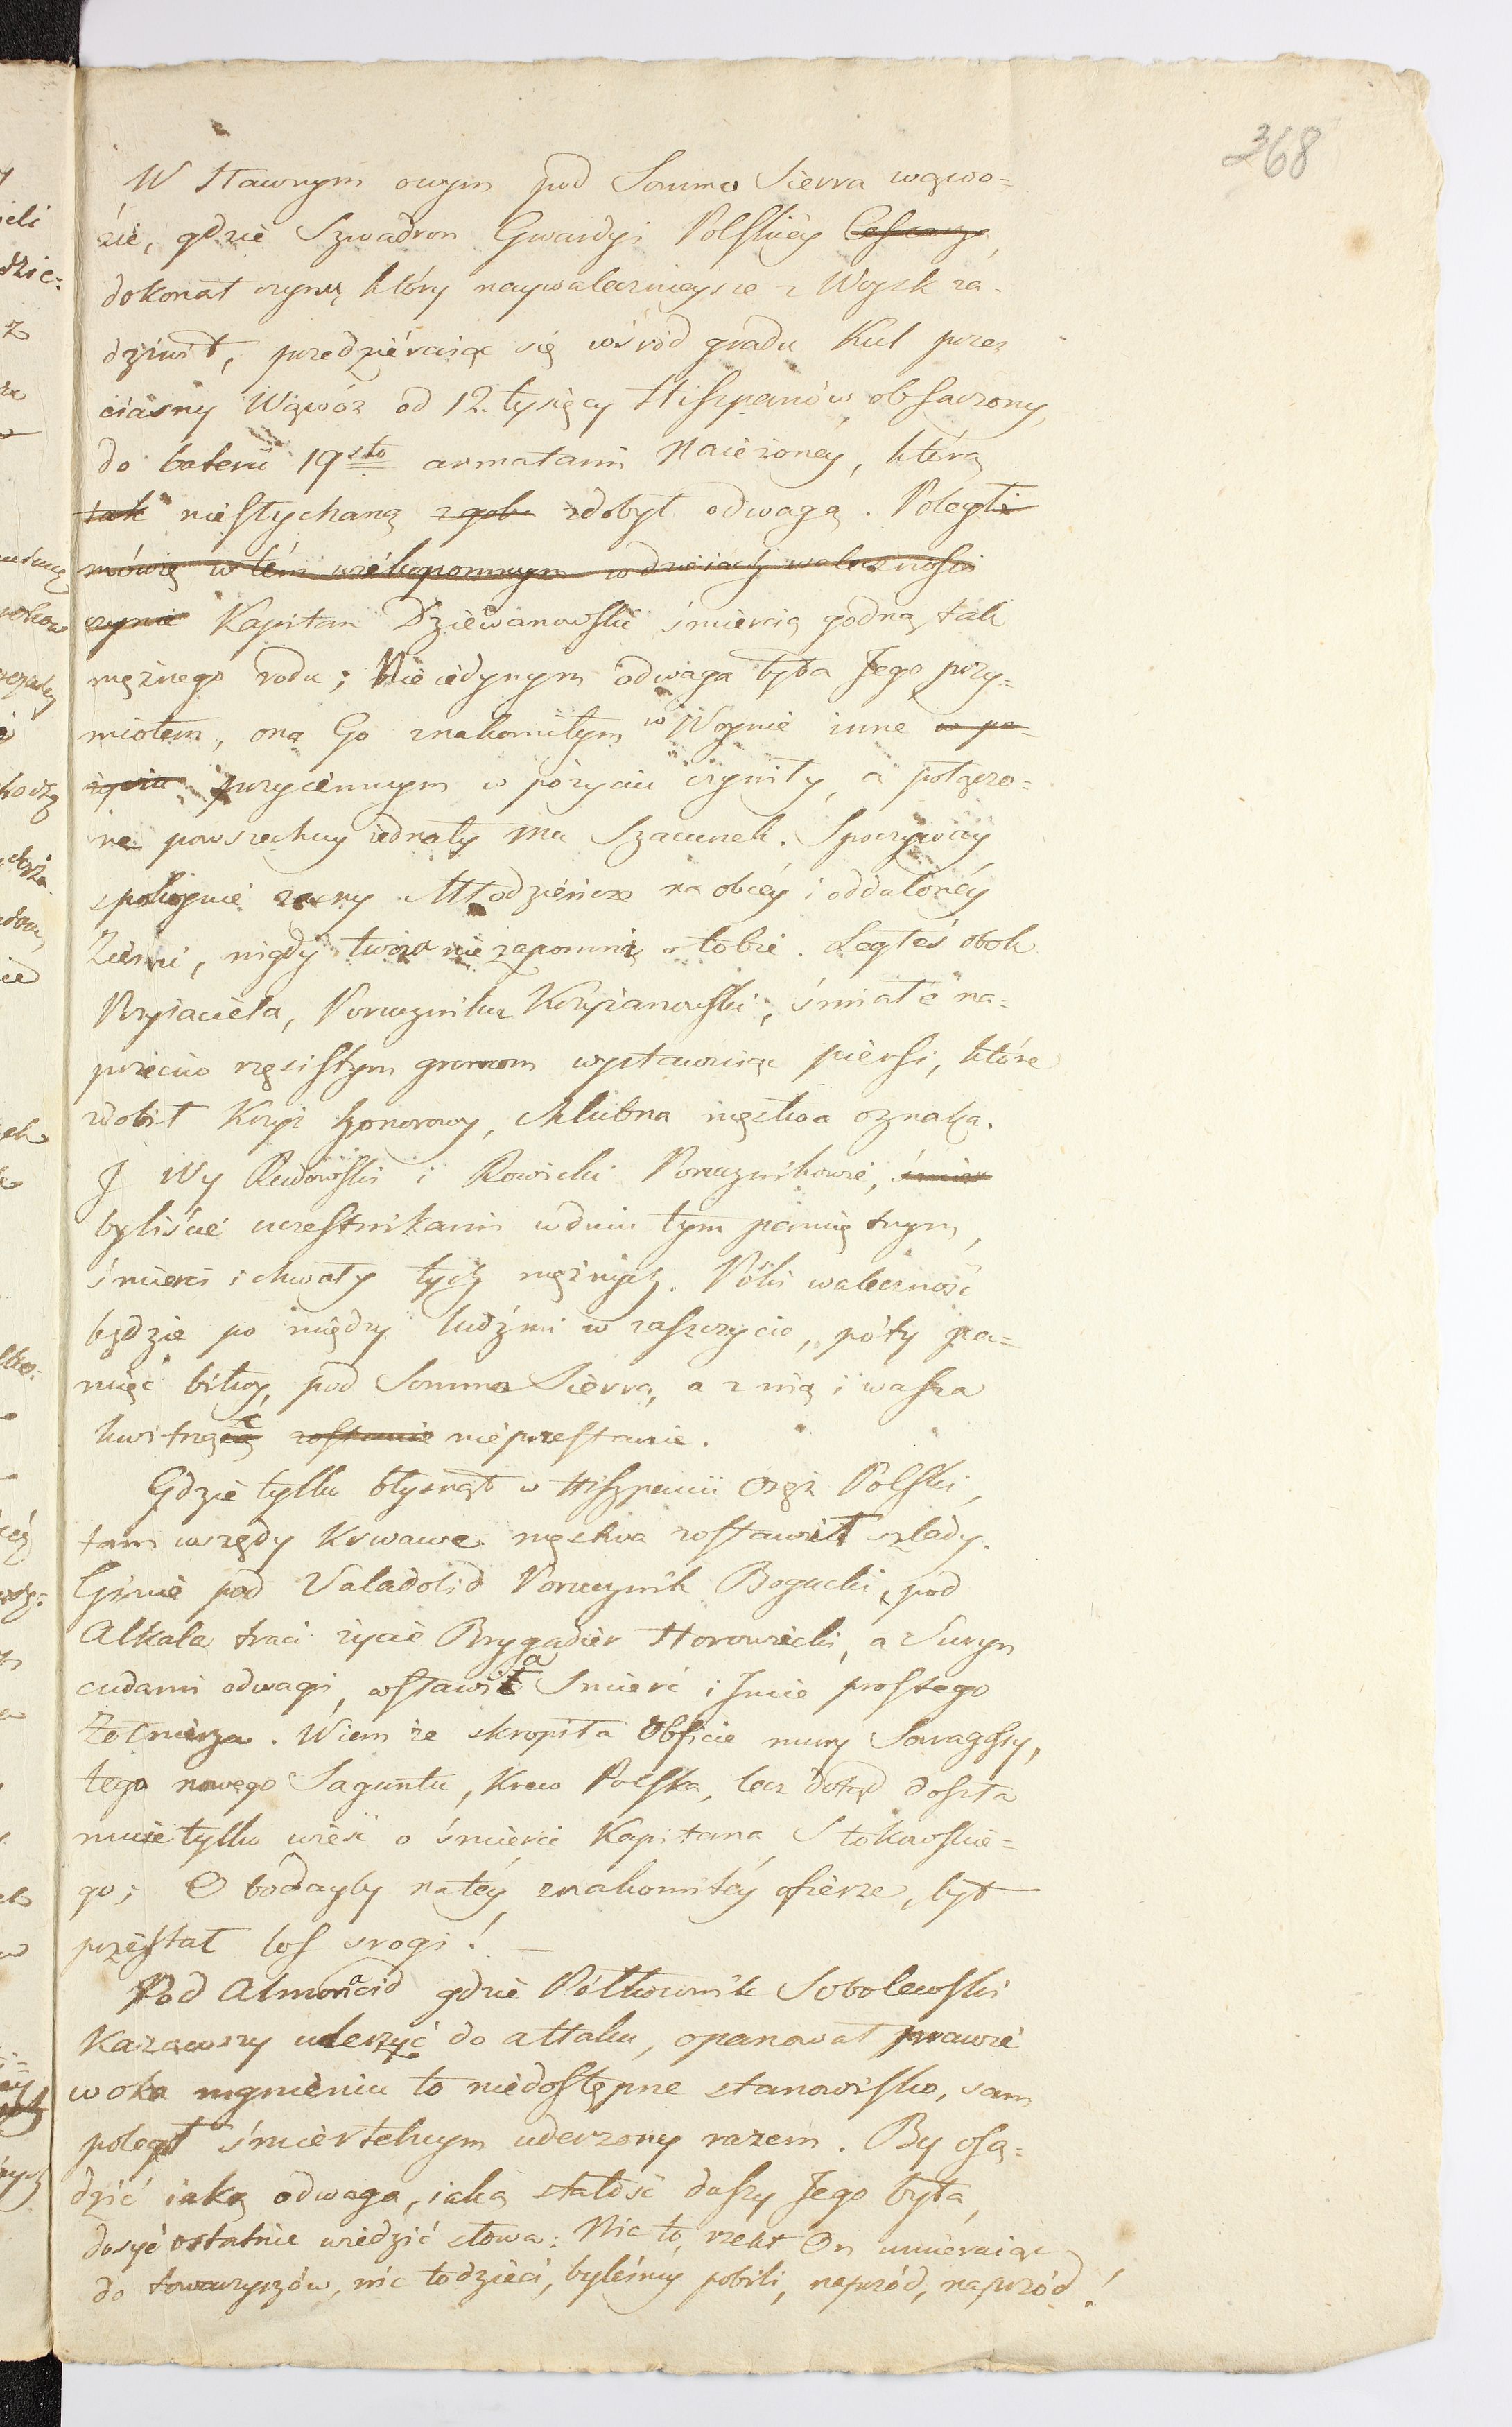 368
W sławnym owym pod Somma Sierra wąwo=
zie, gdzie Szwadron Gwardyi Polskiéy Cesarza,
dokonał czynu, który naywalecznieysze z Woysk za-
dziwił, przedziéraiąc się wśród gradu Kul przez
ciasny Wąwóz od 12. tysięcy Hiszpanów obsadzony,
do baterii 19sto armatami nacieżonéy, którą
tak niesłychaną zdobył odwagą. Poległ
mówię w tém wiekopomnym w dzieiach waleczności
czynie Kapitan Dziewanowski śmiercią godną tak
mężnego rodu; Nie iedynym odwaga była Jego przy=
miotem, ona Go znakomitym w Woynie inne w po=
życiu przyiemnym w pożyciu czyniły, a połączo=
ne powszechny iednały mu Szacunek. Spoczyway
spokoynie zacny Młodzieńcze na obcéy i oddalonéy
Ziemi, nigdy twoi nie zapomnią o tobie. Ległeś obok
Przyiaciela, Porucznika Krzyżanowski, śmiałe na=
przeciw rzęsistym gromom wystawuiąc piersi, które
zdobił Krzyż honorowy, chlubna męstwa oznaka.
J Wy Rudowski i Rowicki Porucznikowie,
byliście uczestnikami w dniu tym pamiętnym,
śmierci i chwały tych mężnych. Póki waleczność
będzie po między ludźmi w zaszczycie, póty pa=
mięć bitwy pod Somma Sierra, a z nią i wasza
kwitnąć zostanie nieprzestanie.
Gdzie tylko błysnął w Hiszpanii Oręż Polski,
tam wszędy Krwawe męstwa zostawił szlady.
Ginie pod Valadolid Porucznik Bogucki, pod
Alkala traci życie Brygadier Horowiecki, a Suryn
cudami odwagi, wsławiła Śmierć i Jmie prostego
Żołnierza. Wiem że skropiła Obficie mury Saragossy,
tego nowego Saguntu, Krew Polska, lecz dotąd doszła
mnie tylko wieść o śmierci Kapitana Stokowskie=
go; O bodayby na téy znakomitéy ofierze, był
przestał los srogi!
Pod Almonacid gdzie Półkownik Sobolewski
Kazawszy uderzyć do attaku, opanował prawie
w oka mgnieniu to niedostępne stanowisko, sam
poległ śmiertelnym uderzony razem. By osą=
dzić iaką odwaga, iaką stałość duszy Jego była,
dosyć ostatnie wiedzić słowa: Nic to, rzekł On umieraiąc
do towarzyszów, nic to dzieci, byleśmy pobili, naprzód, naprzód!